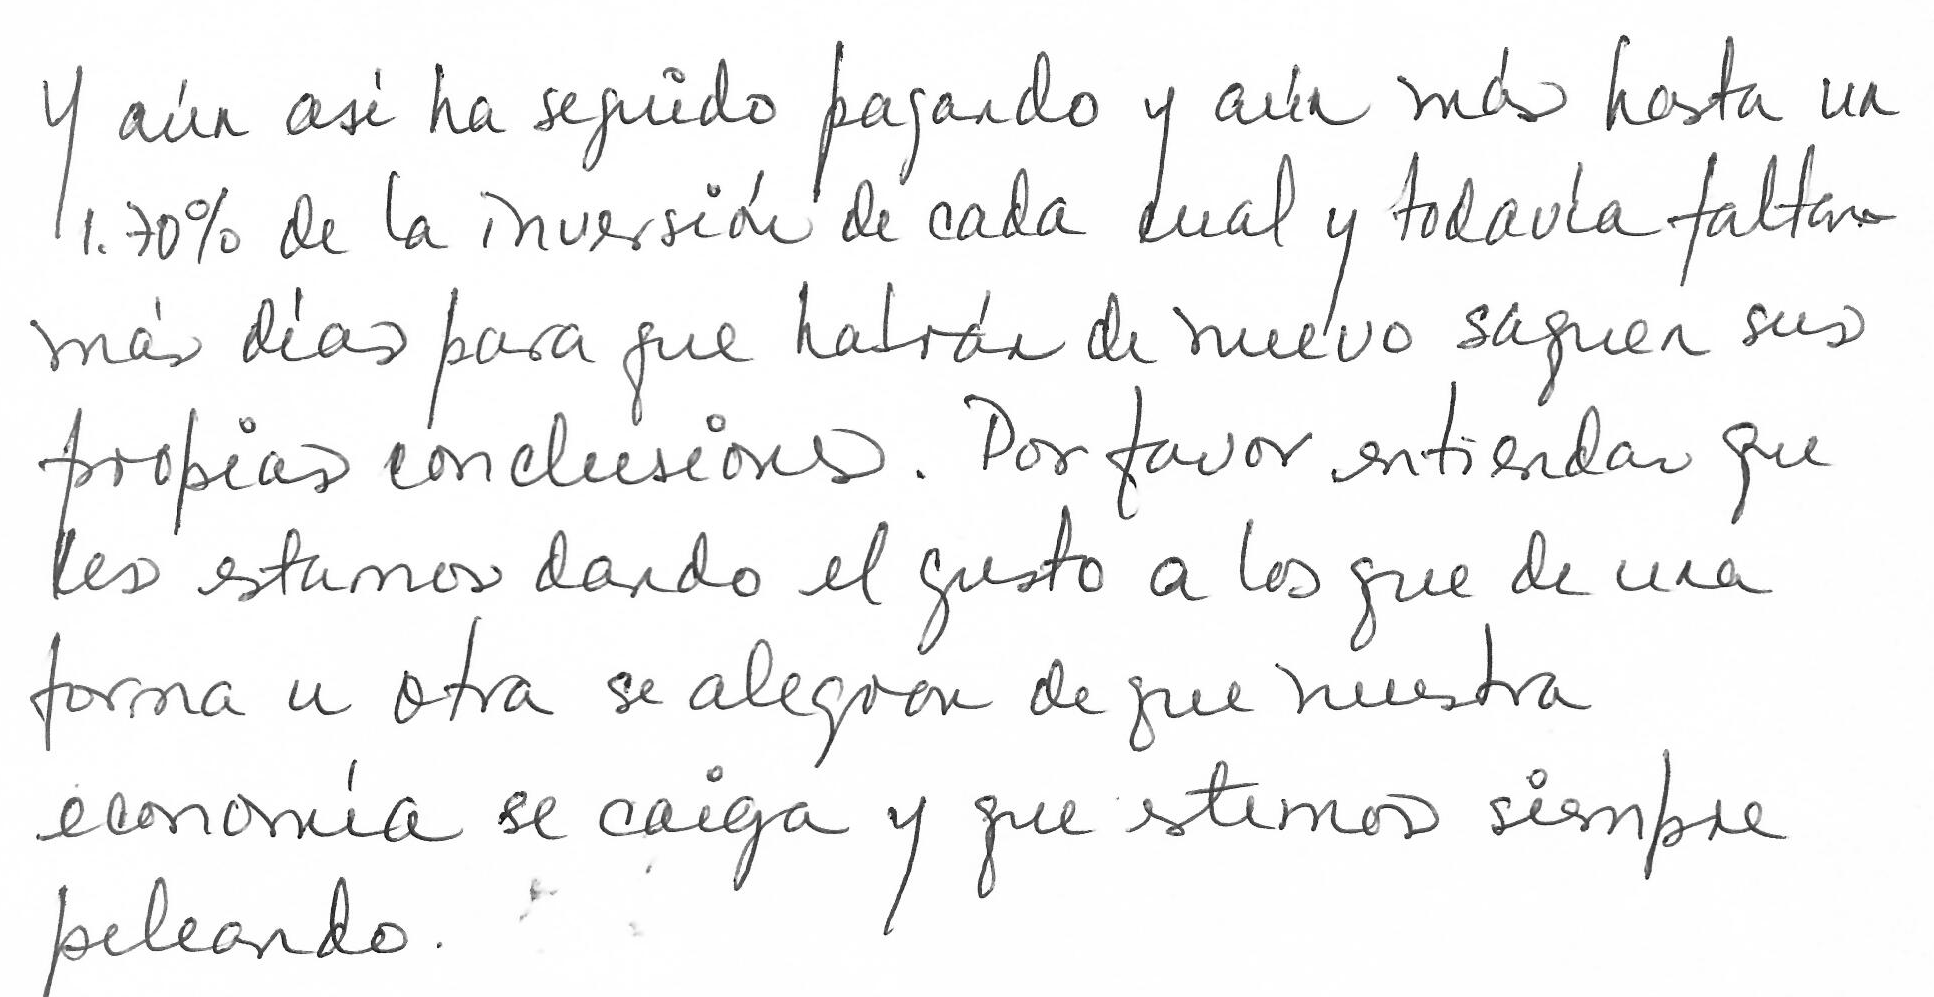 Y aún así ha seguido pagando y aún más hasta un
1.70% de la inversión de cada cual y todavía faltan
más días para que habrán de nuevo saquen sus
propias conclusiones. Por favor entiendan que
les estamos dando el gusto a los que de una
forma u otra se alegran de que nuestra
economía se caiga y que estemos siempre
peleando.